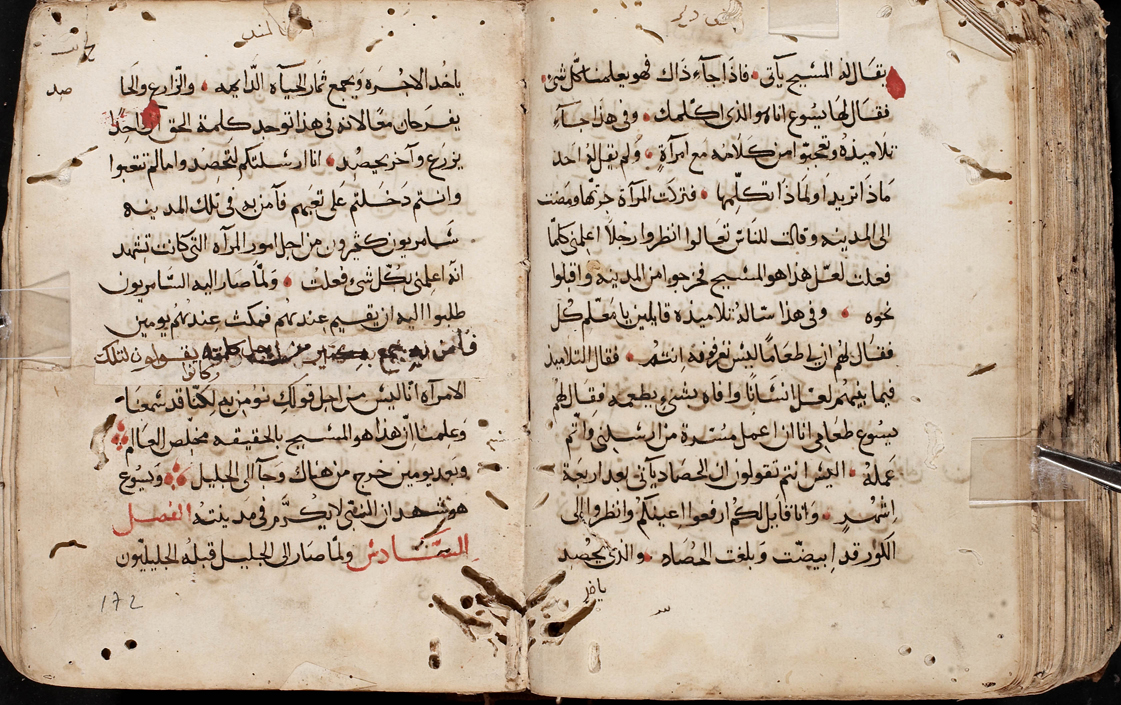 يقال له المسيح يآتي فاذا جآء ذاك فهو يعلمنا كل شي
فقال لها يسوع انا هو الذي اكلمك وفي هذا جآء
تلاميذه وتعجبوا من كلامه مع امرآة ولم يقل له احد
ماذا تريد او لماذا تكلمها فتركت المرآة جرتها ومضت
الى المدينه وقالت للناس تعالوا انظروا رجلا اعلمني كلما
فعلت لعل هذا هو المسيح فخرجوا من المدينه واقبلوا
نحوه وفي هذا ساله تلاميذه قايلين يا معلم كل
فقال لهم ان لي طعاما ليس تعرفونه انتم فقال التلاميذ
فيما بينهم لعل انسانا وافاه بشي يطعمه فقال لهم
يسوع طعامي انا ان اعمل مسرة من ارسلني واتم
عمله اليس انتم تقولون ان الحصاد يآتي بعد اربعة
اشهر وانا قايل لكم ارفعوا اعينكم وانظروا الى
الكور قد ابيضت وبلغت الحصاد والذي يحصد
ياخد
ياخد الاجره ويجمع ثمار الحيآه الدايمه والزارع والحا
يفرحان معا لانه في هذا توجد كلمة الحق واحدا
صد
يزرع وآخر يحصد انا ارسلتكم لتحصدوا ما لم تتعبوا
وانتم دخلتم على تعبهم فآمن به في تلك المدينه
سامريون كثيرون من اجل امور المرآه التي كانت تشهد
انه اعلمني بكل شي فعلت ولما صار اليه السامريون
طلبوا اليه ان يقيم عندهم فمكث عندهم يومين
فآمن به جمع كلمته يقولون لتلك
وكانوا
الامرآه اننا ليس من اجل قولك نؤمن به لكننا قد سمعنا
وعلمنا ان هذا هو المسيح بالحقيقه مخلص العالم
وبعد يومين خرج من هناك وجآ الى الجليل ويسوع
هو شهد ان النبي لا يكرم في مدينته الفصل
السادس ولما صار الى الجليل قبله الجليليون
172